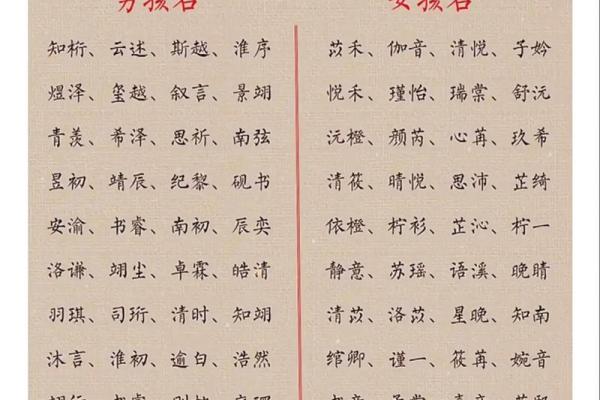 男孩名
女孩名
知桁、云述、斯越、淮序
煜泽、玺越、叙言、景翊
青羡、希泽、思祈、南弦
昱初、靖辰、纪黎、砚书
安渝、书睿、南初、辰奕
洛谦、翊尘、卓霖、皓清
羽琪、司珩、清时、知翊
沐言、淮初、逾白、浩然
苡禾、伽音、清悦、子妗
悦禾、瑾怡、瑞棠、舒沅
沅橙、颜芮、心苒、玖希
清筱、晴悦、思沛、芷绮
依橙、柠衫、芷沁、柠一
静意、苏瑶、语溪、晚晴
清苡、洛苡、星晚、知南
绾卿、谨一、筱苒、婉音